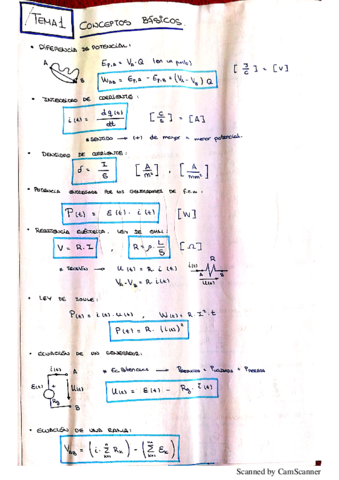 TEMA 1 CONCEPTOS BÁSICOS.
• DIFERENCIA DE POTENCIAL:
A B
E_P,B = V_B · Q (en un punto)
W_AB = E_P,A - E_P,B = (V_A - V_B) Q [J/C] = [V]
• INTENSIDAD DE CORRIENTE:
i(t) = dq(t)/dt [C/s] = [A]
* SENTIDO → (+) de mayor → menor potencial.
• DENSIDAD DE CORRIENTE:
δ = I/S [A/m²] , [A/mm²]
• POTENCIA ENTREGADA POR LOS GENERADORES DE F.E.M.:
P(t) = E(t) · i(t) [W]
• RESISTENCIA ELÉCTRICA. LEY DE OHM:
V = R · I , R = ρ · L/S [Ω]
* TENSIÓN → U(t) = R · i(t)
V_A - V_B = R · i(t)
i(t) R A B U(t)
• LEY DE JOULE:
P(t) = i(t) · u(t) , W(t) = R · I² · t
P(t) = R · (i(t))²
• ECUACIÓN DE UN GENERADOR:
i(t) A
E(t) + U(t) Rg B
U(t) = E(t) - Rg · i(t)
• ECUACIÓN DE UNA RAMA:
V_AB = (i · Σ R_K) - (Σ E_K)
Scanned by CamScanner